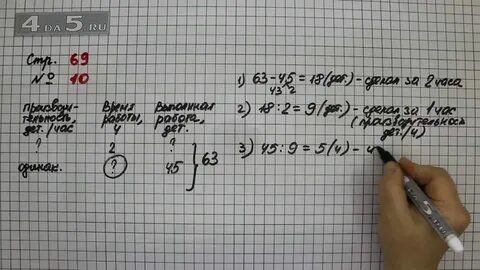 4DA5.RU
Стр. 69
№ 10
производи-
тельность,
дет./час
Время
работы,
ч
Выполненная
работа,
дет.
?
2
?
одинак.
?
45
63
1) 63 - 45 = 18 (дет.) - сделал за 2 часа
43 2
2) 18 : 2 = 9 (дет.) - сделал за 1 час
(производительность
дет./ч)
3) 45 : 9 = 5 (ч) -